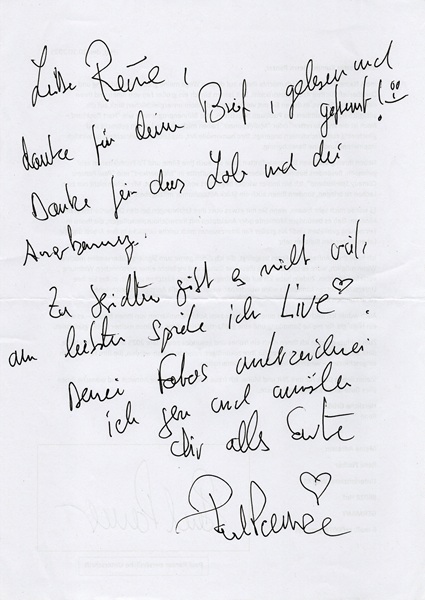 Liebe René,
danke für deine Brief, gelesen und
gefreut!
Danke für das Lob und die
Anerkennung.
Zu gibt es nicht viel,
am liebsten spiele ich Live.
Deine Fotos unterzeichne
ich gern und wünsche
dir alles Gute